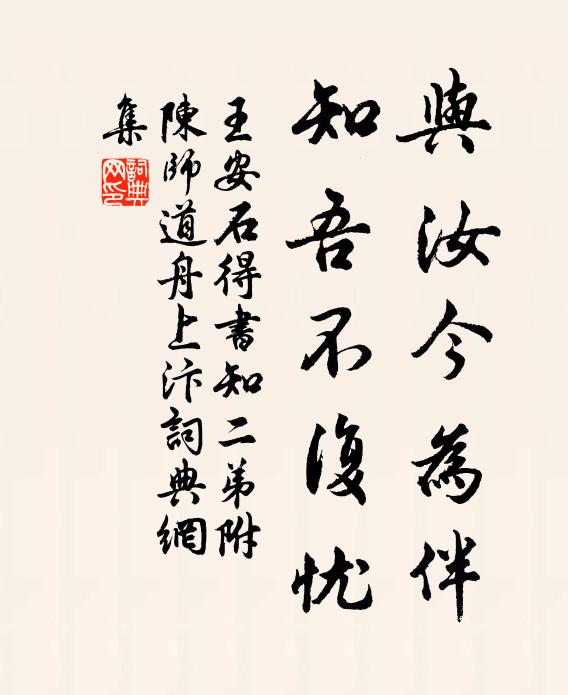 與汝今為伴
知吾不復忧
王安石得書知二弟附
陳師道舟上汴詞典網
集
詞典網印